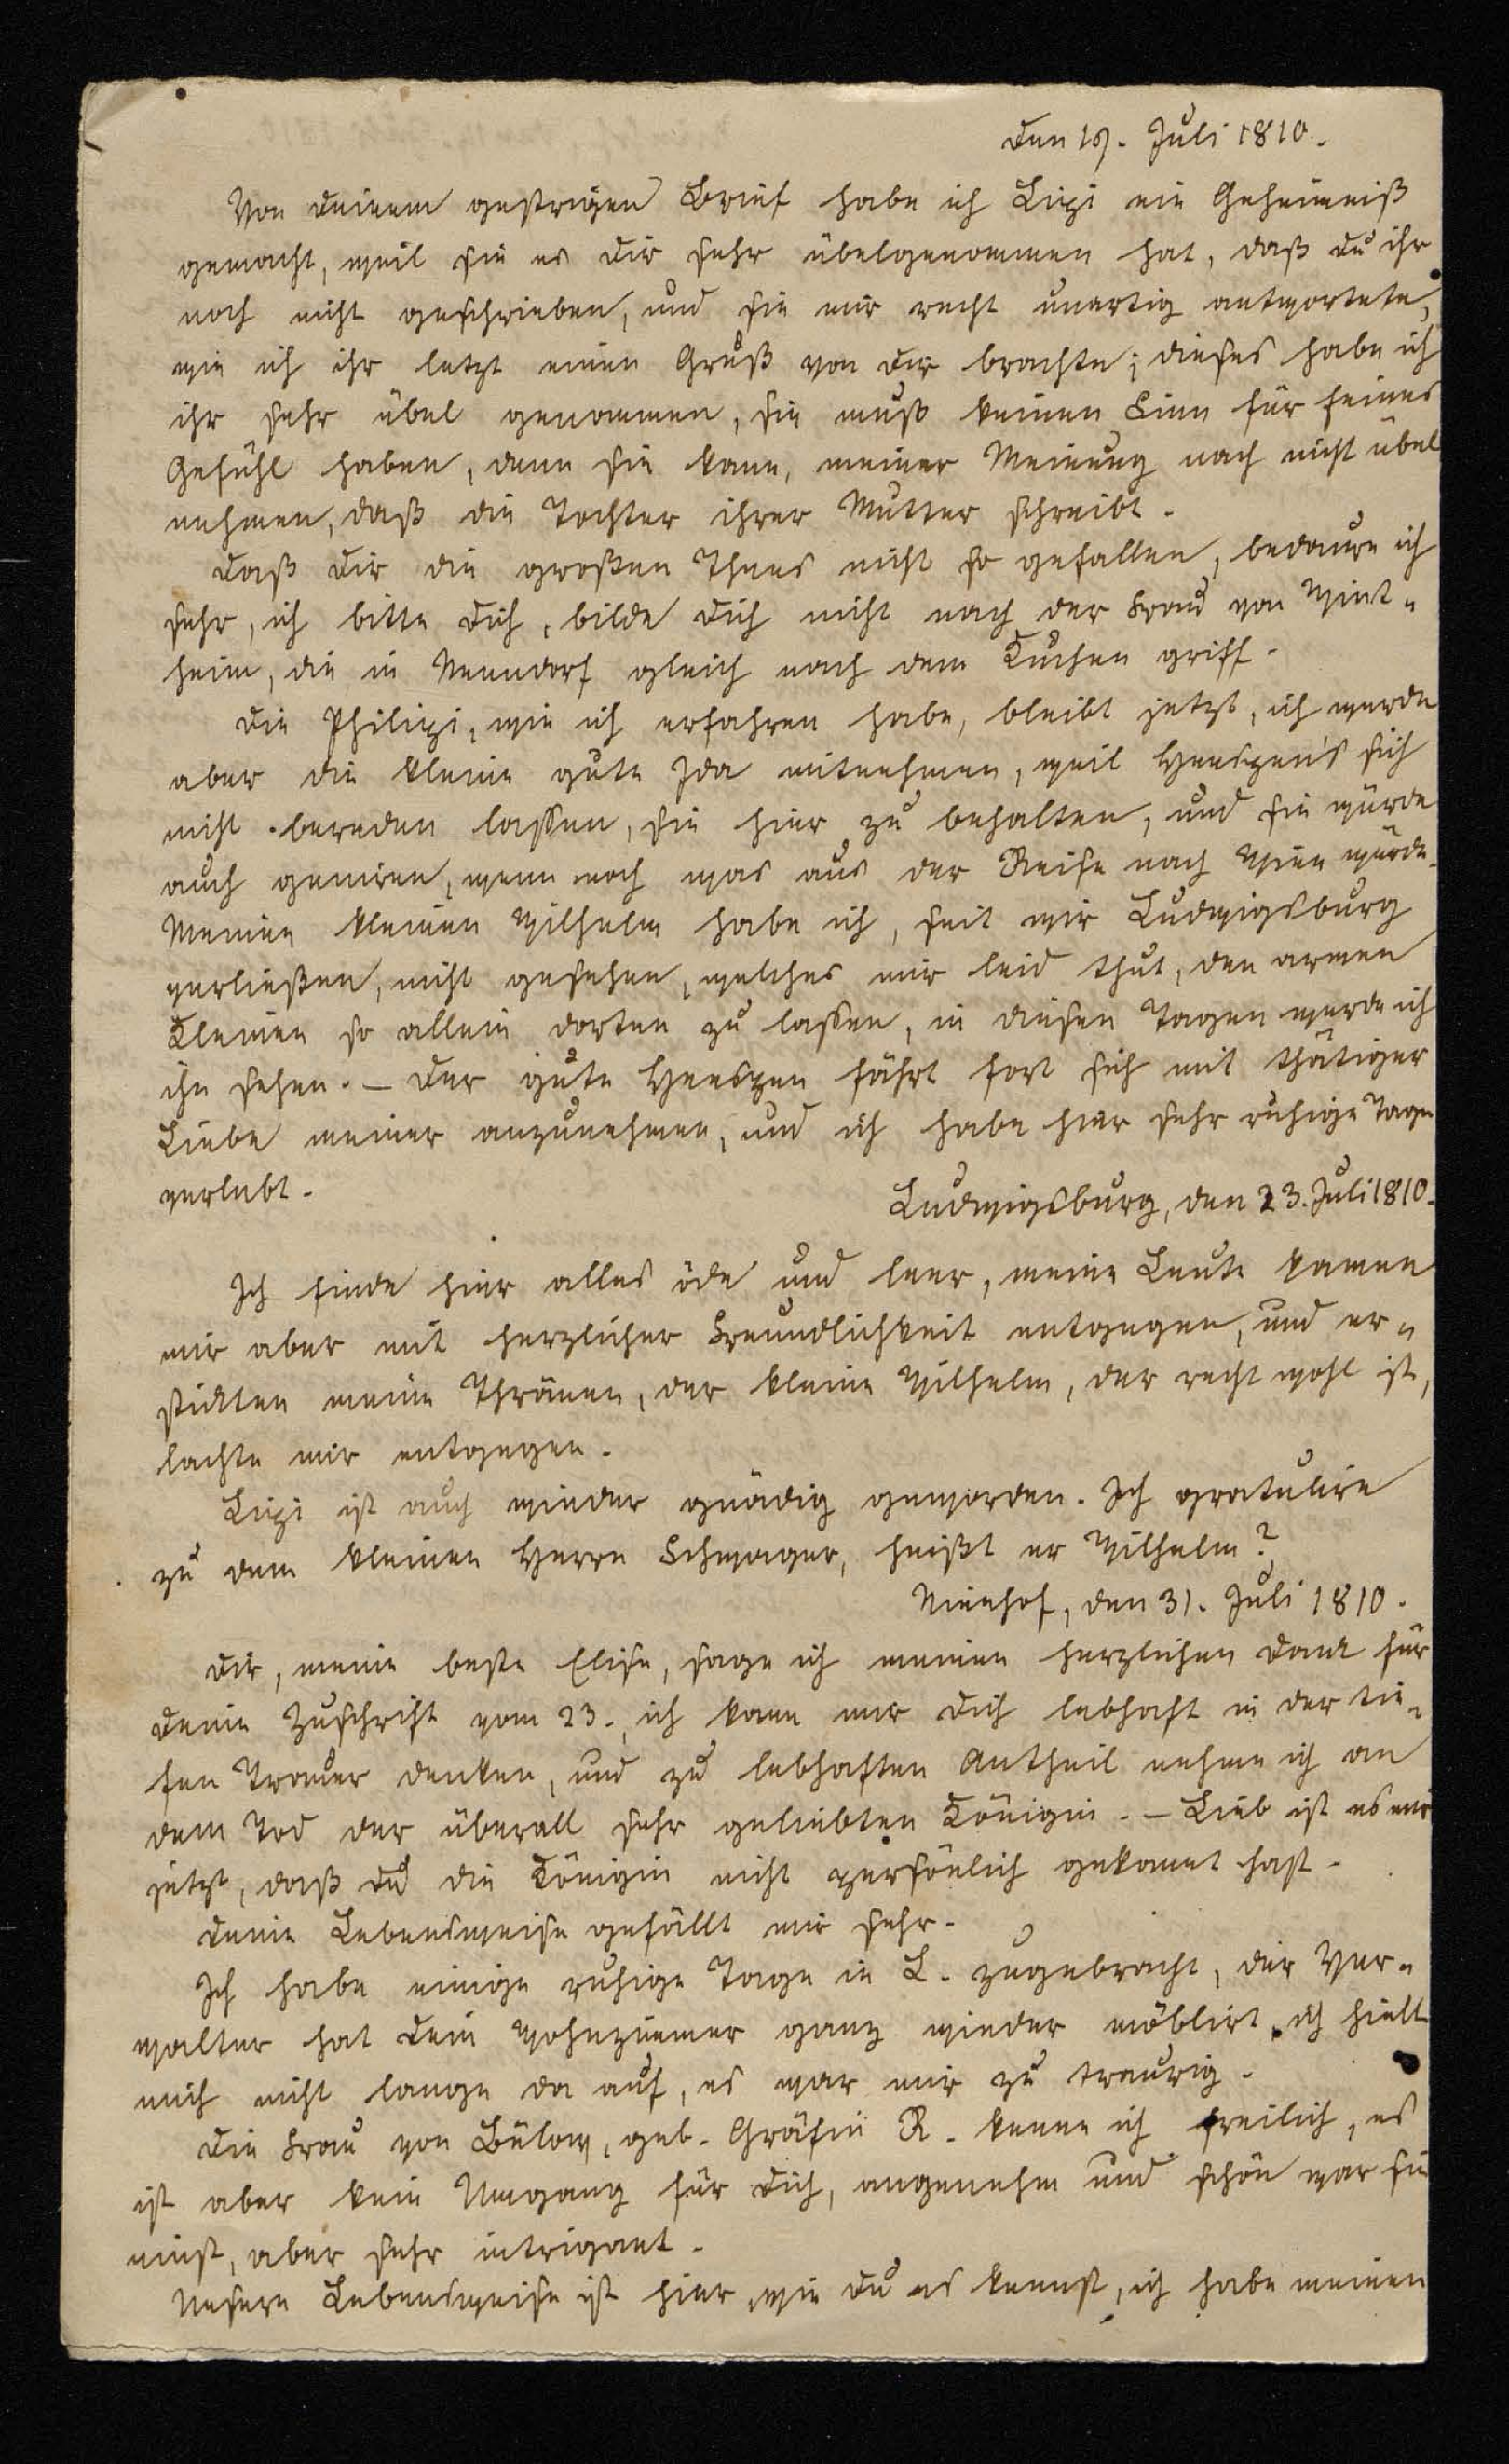 Den 19. Juli 1810.
Von Deinem gestrigen Brief habe ich Lizi ein Geheimniß
gemacht, weil sie es Dir sehr übelgenommen hat, daß Du ihr
noch nicht geschrieben, und sie mir recht unartig antwortete,
wie ich ihr letzt einen Gruß von Dir brachte; dieses habe ich
ihr sehr übel genommen, sie muß keinen Sinn für feines
Gefühl haben, denn sie kann, meiner Meinung nach nicht übel
nehmen, daß die Tochter ihrer Mutter schreibt.
Daß Dir die großen Thees nicht so gefallen, bedaure ich
sehr, ich bitte Dich, bilde Dich nicht nach der Frau von Wint-
heim, die in Nenndorf gleich nach dem Kuchen griff.
Die Philipi, wie ich erfahren habe, bleibt jetzt, ich werde
aber die kleine gute Ida mitnehmen, weil Hespen's sich
nicht bereden lassen, sie hier zu behalten, und sie würde
auch geniren, wenn noch was aus der Reise nach Wien würde.
Meinen kleinen Wilhelm habe ich, seit wir Ludwigsburg
verließen, nicht gesehen, welches mir leid thut, den armen
Kleinen so allein dorten zu lassen, in diesen Tagen werde ich
ihn sehen. – Der gute Heespen fährt fort sich mit thätiger
Liebe meiner anzunehmen, und ich habe hier sehr ruhige Tage
verlebt.
Ludwigsburg, den 23. Juli 1810.
Ich finde hier alles öde und leer, meine Leute kamen
mir aber mit herzlicher Freundlichkeit entgegen, und er-
stickten meine Thränen, der kleine Wilhelm, der recht wohl ist,
lachte mir entgegen.
Lizi ist auch wieder gnädig geworden. Ich gratulire
zu dem kleinen Herrn Schwager, heißt er Wilhelm?
Nienhof, den 31. Juli 1810.
Dir, meine beste Elise, sage ich meinen herzlichen Dank für
Deine Zuschrift vom 23., ich kann mir Dich lebhaft in der tie-
fen Trauer denken, und zu lebhaften Antheil nehme ich an
dem Tod der überall sehr geliebten Königin. – Lieb ist es mir
jetzt, daß Du die Königin nicht persönlich gekannt hast.
Deine Lebensweise gefällt mir sehr.
Ich habe einige ruhige Tage in L. zugebracht, der Ver-
walter hat Dein Wohnzimmer ganz wieder möblirt, ich hielt
mich nicht lange da auf, es war mir zu traurig.
Die Frau von Bülow, geb. Gräfin R. kenne ich freilich, es
ist aber kein Umgang für Dich, angenehm und schön war sie
einst, aber sehr intrigant.
Unsere Lebensweise ist hier, wie Du es kennst, ich habe meinen